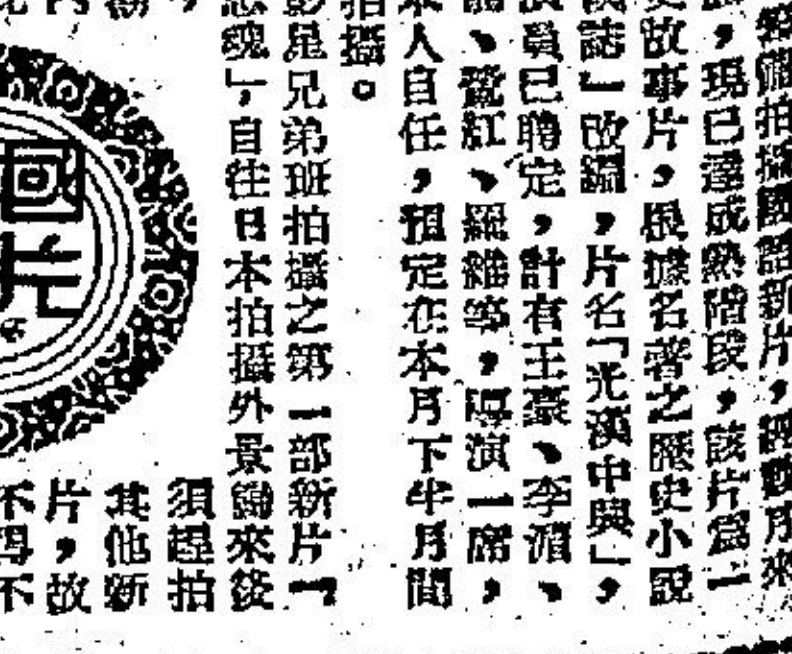 備拍攝國語新片，經數月來
，現已達成熟階段，該片為一
故事片，根據名著之歷史小說
誌」改編，片名「光漢中興」，
員已聘定，計有王豪、李湄、
、鷺紅、羅維等，導演一席，
人自任，預定在本月下半月間
拍攝。
影是兄弟班拍攝之第一部新片「
魂」，自往日本拍攝外景歸來後
須趕拍
其他新
片，故
不得不
國片